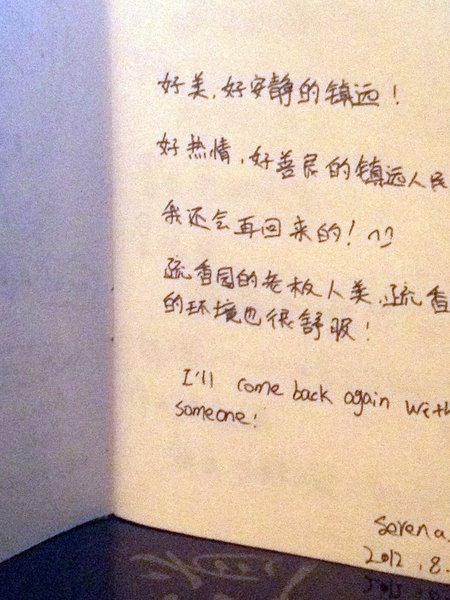 好美,好安静的镇远!
好热情,好善良的镇远人民
我还会再回来的! ^^
疏香园的老板人美,疏香
的环境也很舒服!
I'll come back again with
someone!
Serena.
2012.8.